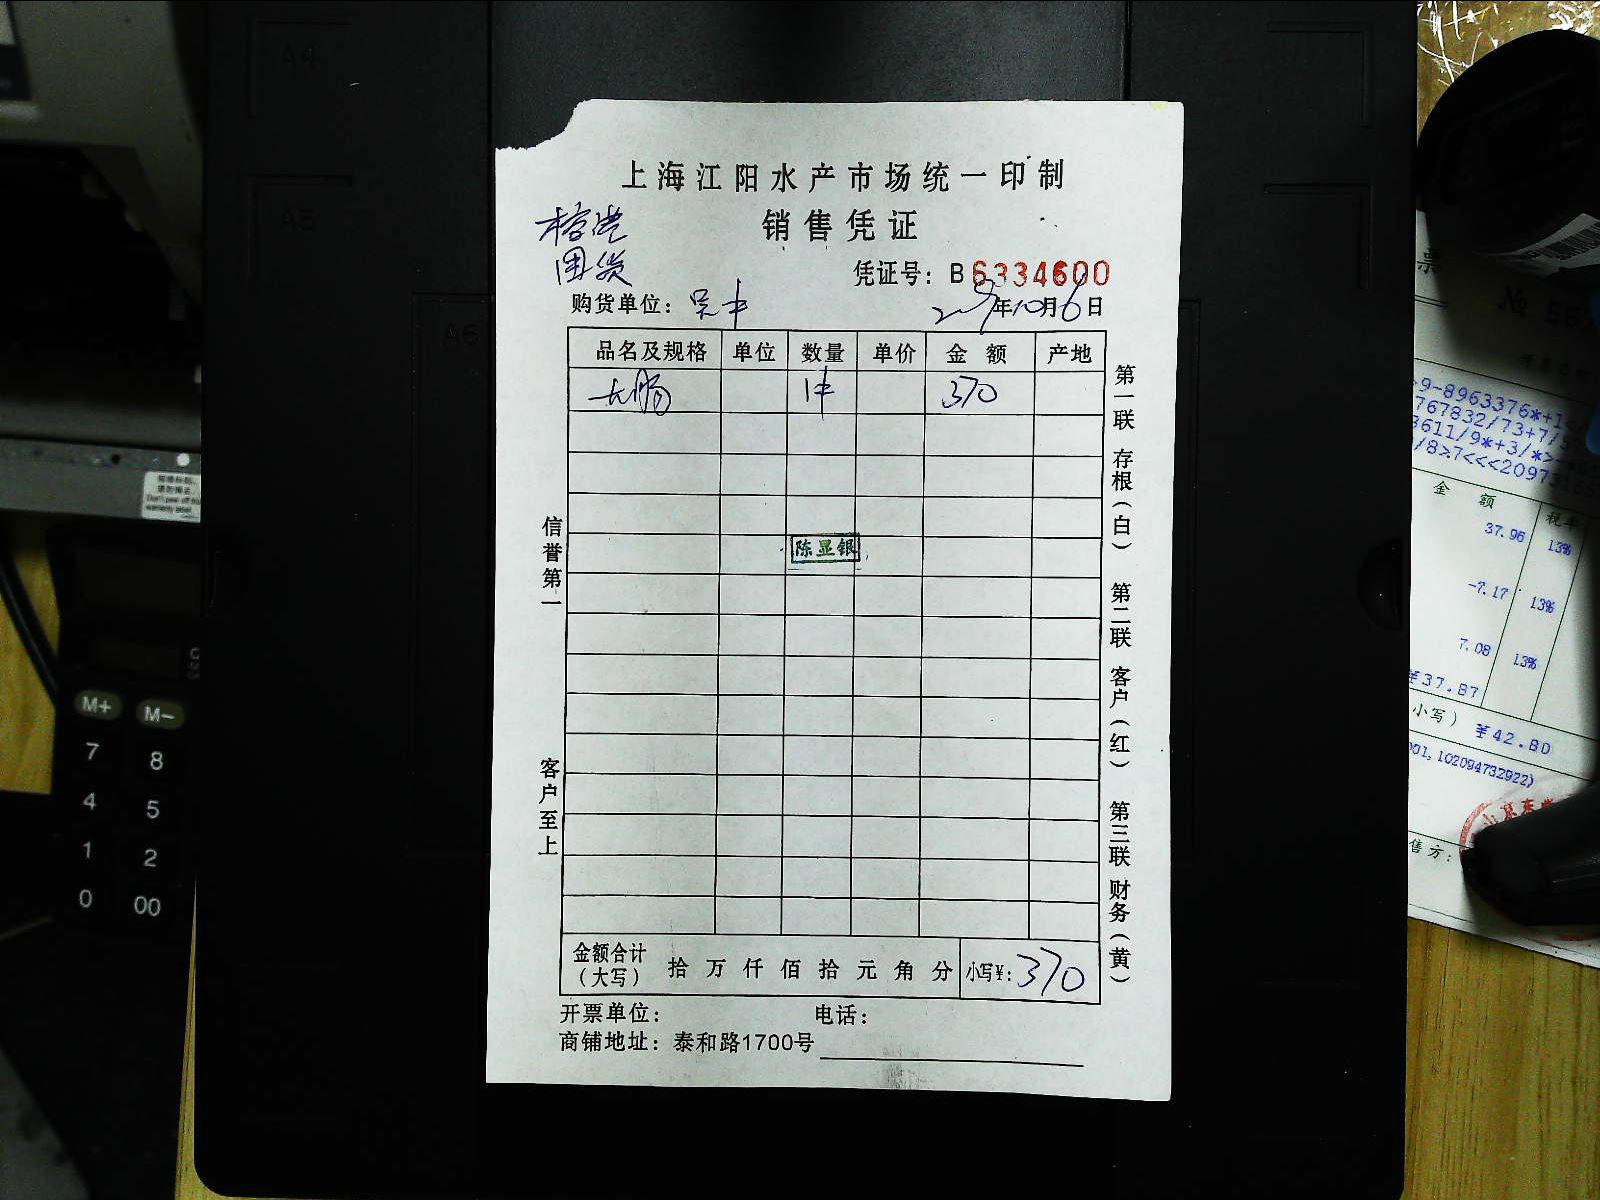 上海江阳水产市场统一印制
销售凭证
凭证号：B6334600
购货单位：吴中
年10月6日
品名及规格 单位 数量 单价 金额 产地
大肠 1件 370
陈显银
信誉第一
客户至上
第一联 存根（白） 第二联 客户（红） 第三联 财务（黄）
金额合计（大写） 拾 万 仟 佰 拾 元 角 分 小写¥：370
开票单位： 电话：
商铺地址：泰和路1700号
A4
A5
A6
M+ M-
7 8
4 5
1 2
0 00
票
№
9-8963376*+1
767832/73+7/
3611/9*+3/*>
/8>7<<<20973
金额 税率
37.96 13%
-7.17 13%
7.08 13%
¥37.87
小写） ¥42.80
001,102094732922)
售方：